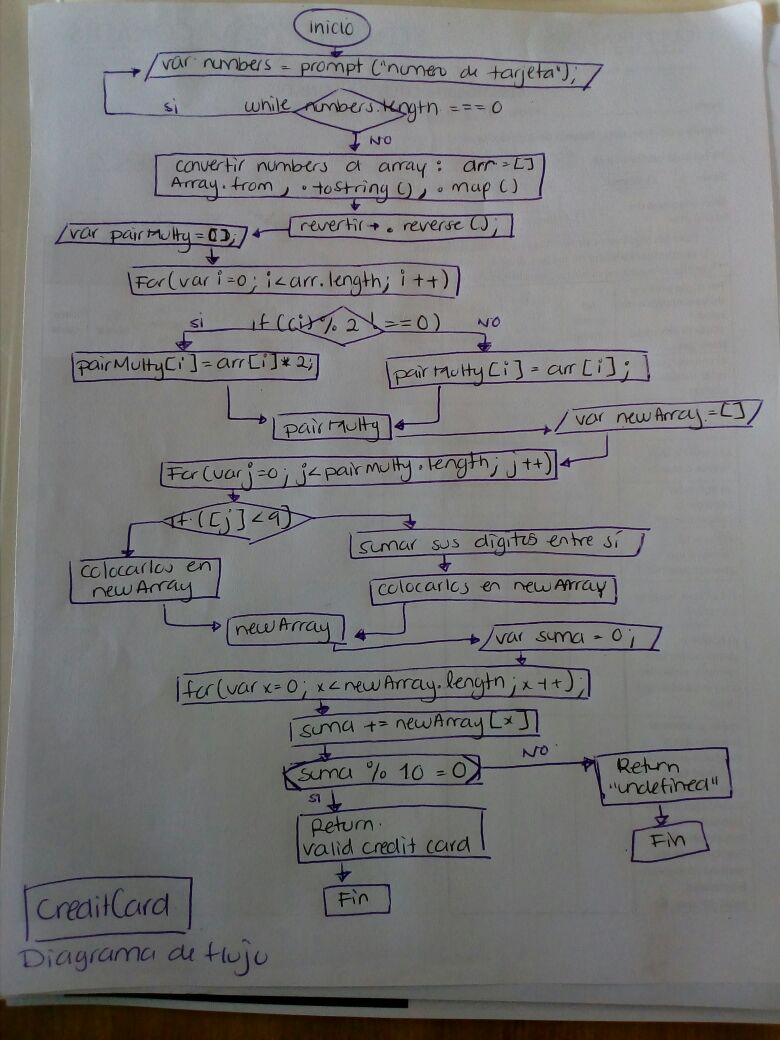 inicio
var numbers = prompt ("numero de tarjeta");
si while numbers.length === 0
NO
convertir numbers a array: arr = []
Array.from, .toString(), .map()
revertir → . reverse();
var pairMulty = [];
For(var i=0; i<arr.length; i++)
si if ((i) % 2 !==0) NO
pairMulty[i] = arr[i] * 2;
pairMulty[i] = arr[i];
pairMulty
var newArray = []
For(var j=0; j<pairmulty.length; j++)
if ([j] < 9)
sumar sus digitos entre sí
colocarlos en
newArray
colocarlos en newArray
newArray
var suma = 0;
for(var x=0; x<newArray.length; x++);
suma += newArray[x]
suma % 10 = 0
NO
Return
"undefined"
si
Return.
valid credit card
Fin
Fin
CreditCard
Diagrama de flujo